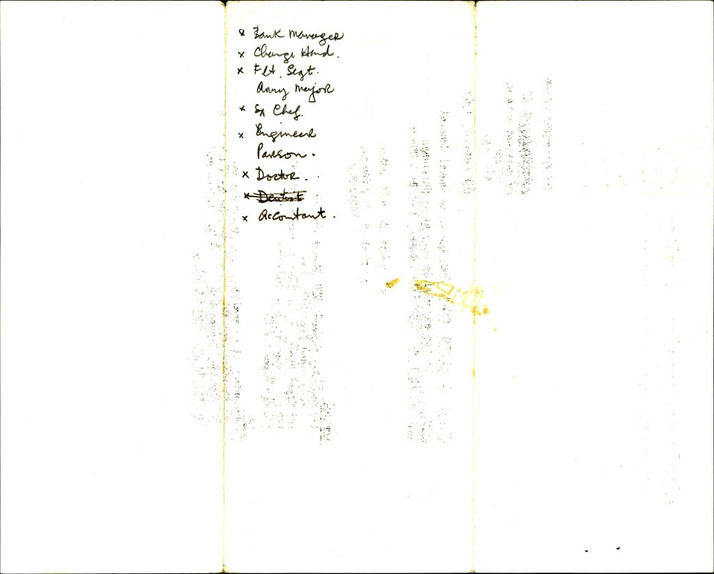 x Bank Manager
x Charge Hand.
x Flt. Segt.
Army Major
x Ex Chef.
x Engineer
Parson.
x Doctor.
x Dentist
x Accountant.